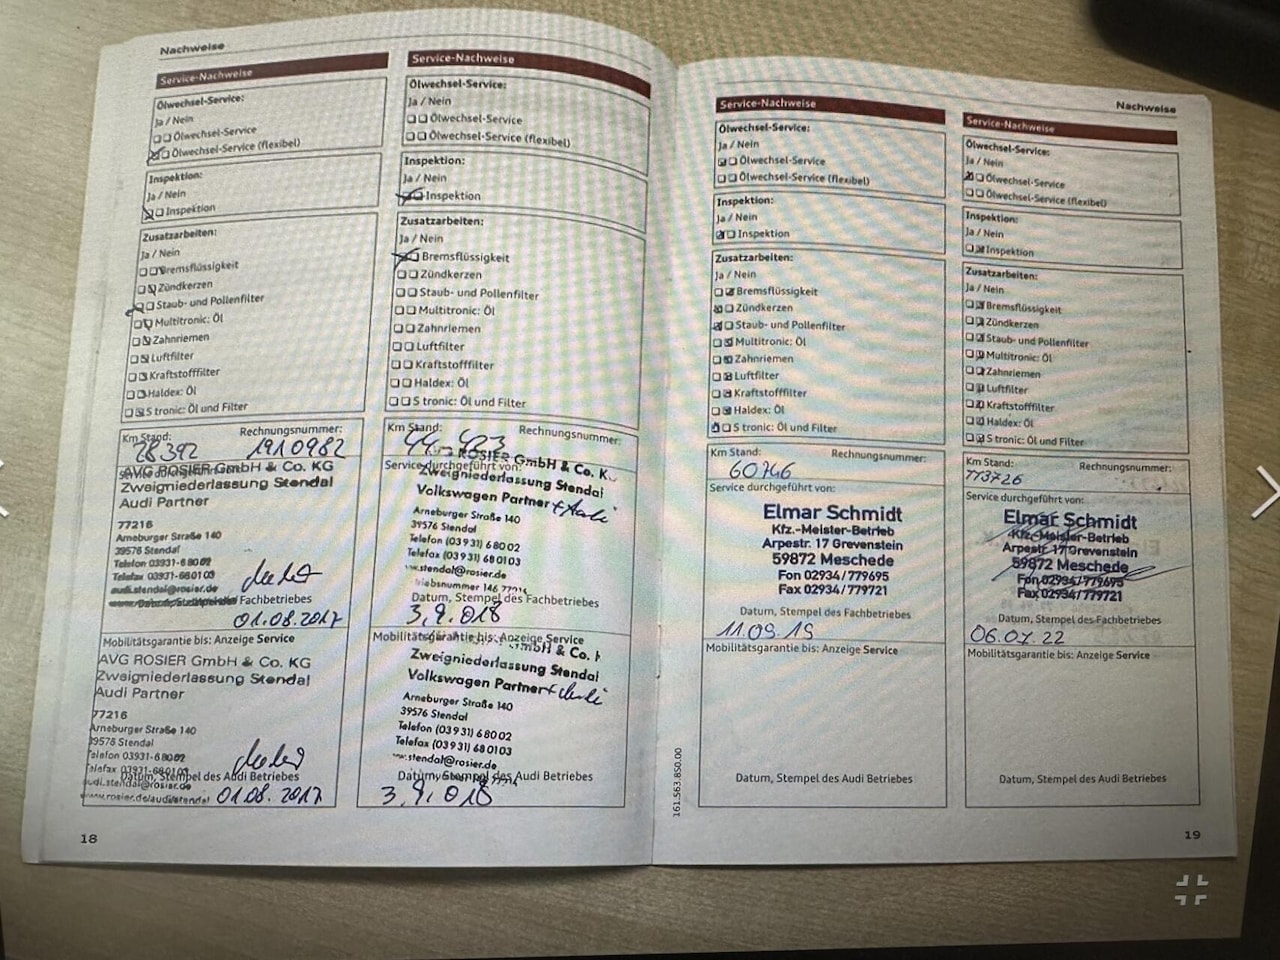 Nachweise
Service-Nachweise
Ölwechsel-Service:
Ja / Nein
Ölwechsel-Service
Ölwechsel-Service (flexibel)
Inspektion:
Ja / Nein
Inspektion
Zusatzarbeiten:
Ja / Nein
Bremsflüssigkeit
Zündkerzen
Staub- und Pollenfilter
Multitronic: Öl
Zahnriemen
Luftfilter
Kraftstofffilter
Haldex: Öl
S tronic: Öl und Filter
Km Stand: Rechnungsnummer:
28392 1910982
AVG ROSIER GmbH & Co. KG
Zweigniederlassung Stendal
Audi Partner
77216
Arneburger Straße 140
39576 Stendal
Telefon 03931-68002
Telefax 03931-680103
audi.stendal@rosier.de
Fachbetriebes
01.08.2017
Mobilitätsgarantie bis: Anzeige Service
AVG ROSIER GmbH & Co. KG
Zweigniederlassung Stendal
Audi Partner
77216
Arneburger Straße 140
39576 Stendal
Telefon 03931-68002
Telefax 03931-680103
Datum, Stempel des Audi Betriebes
audi.stendal@rosier.de
www.rosier.de/audi/stendal 01.08.2017
18
Service-Nachweise
Ölwechsel-Service:
Ja / Nein
Ölwechsel-Service
Ölwechsel-Service (flexibel)
Inspektion:
Ja / Nein
Inspektion
Zusatzarbeiten:
Ja / Nein
Bremsflüssigkeit
Zündkerzen
Staub- und Pollenfilter
Multitronic: Öl
Zahnriemen
Luftfilter
Kraftstofffilter
Haldex: Öl
S tronic: Öl und Filter
Km Stand: Rechnungsnummer:
44 423
ROSIER GmbH & Co. K
Service durchgeführt von:
Zweigniederlassung Stendal
Volkswagen Partner + Audi
Arneburger Straße 140
39576 Stendal
Telefon (03931) 68002
Telefax (03931) 680103
stendal@rosier.de
Datum, Stempel des Fachbetriebes
3.9.018
Mobilitätsgarantie bis: Anzeige Service
Zweigniederlassung Stendal
Volkswagen Partner + Audi
Arneburger Straße 140
39576 Stendal
Telefon (03931) 68002
Telefax (03931) 680103
stendal@rosier.de
Datum, Stempel des Audi Betriebes
3.9.018
Nachweise
Service-Nachweise
Ölwechsel-Service:
Ja / Nein
Ölwechsel-Service
Ölwechsel-Service (flexibel)
Inspektion:
Ja / Nein
Inspektion
Zusatzarbeiten:
Ja / Nein
Bremsflüssigkeit
Zündkerzen
Staub- und Pollenfilter
Multitronic: Öl
Zahnriemen
Luftfilter
Kraftstofffilter
Haldex: Öl
S tronic: Öl und Filter
Km Stand: Rechnungsnummer:
60746
Service durchgeführt von:
Elmar Schmidt
Kfz.-Meister-Betrieb
Arpestr. 17 Grevenstein
59872 Meschede
Fon 02934/779695
Fax 02934/779721
Datum, Stempel des Fachbetriebes
11.09.19
Mobilitätsgarantie bis: Anzeige Service
Datum, Stempel des Audi Betriebes
161.563.850.00
Service-Nachweise
Ölwechsel-Service:
Ja / Nein
Ölwechsel-Service
Ölwechsel-Service (flexibel)
Inspektion:
Ja / Nein
Inspektion
Zusatzarbeiten:
Ja / Nein
Bremsflüssigkeit
Zündkerzen
Staub- und Pollenfilter
Multitronic: Öl
Zahnriemen
Luftfilter
Kraftstofffilter
Haldex: Öl
S tronic: Öl und Filter
Km Stand: Rechnungsnummer:
113726
Service durchgeführt von:
Elmar Schmidt
Kfz.-Meister-Betrieb
Arpestr. 17 Grevenstein
59872 Meschede
Fon 02934/779695
Fax 02934/779721
Datum, Stempel des Fachbetriebes
06.07.22
Mobilitätsgarantie bis: Anzeige Service
Datum, Stempel des Audi Betriebes
19